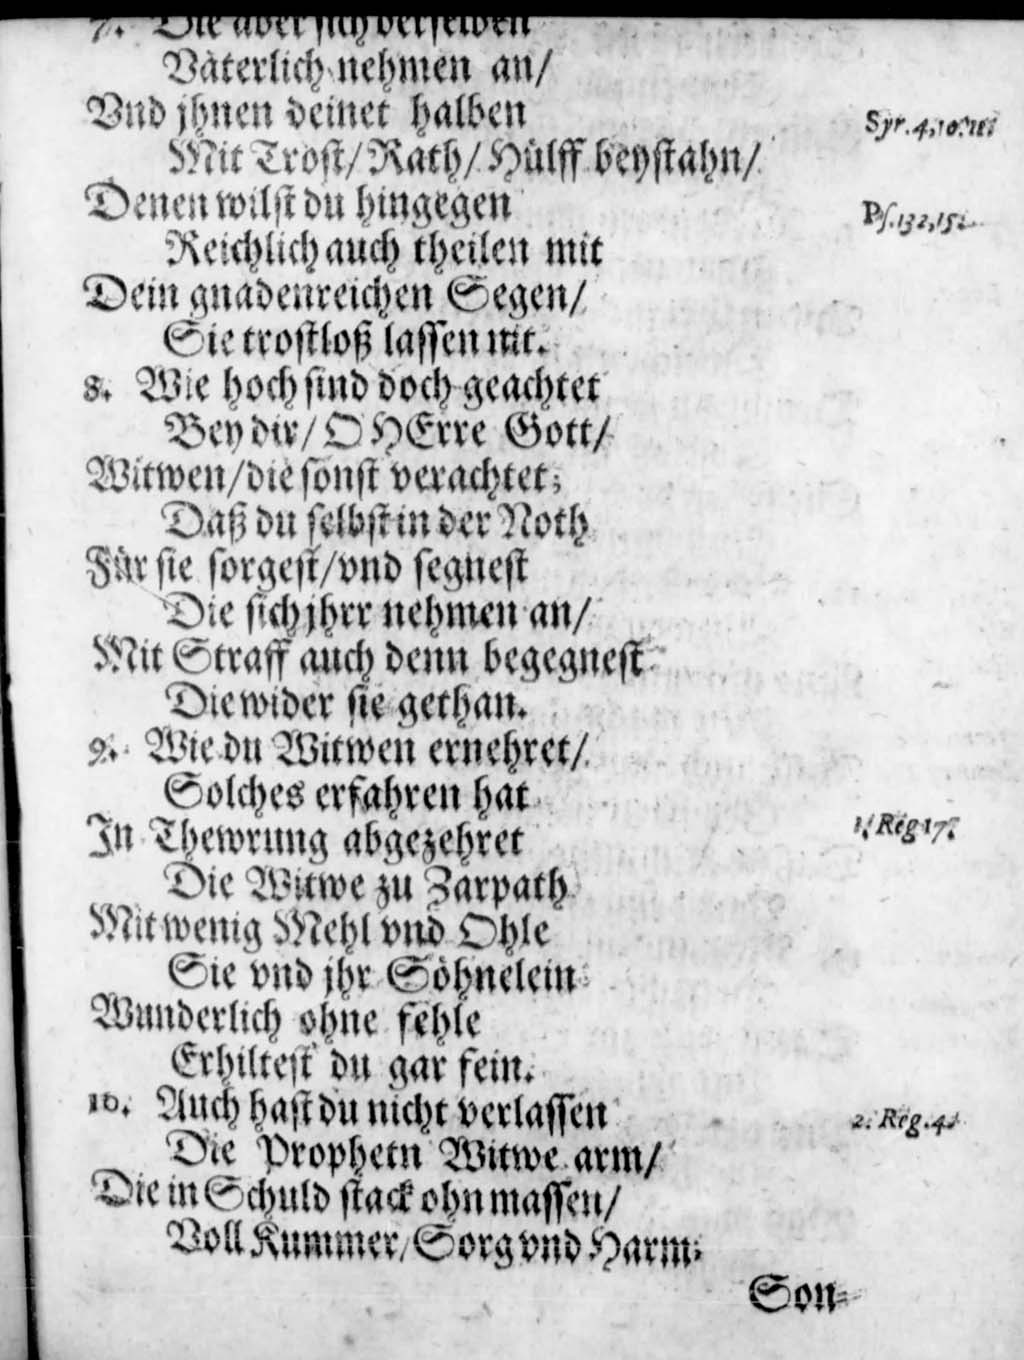 7. Die aber sich derselben
Väterlich nehmen an/
Vnd jhnen deinet halben
Mit Trost/ Rath/ Hülff beystahn/
Syr. 4, 10.
Denen wilst du hingegen
Ps. 132, 15.
Reichlich auch theilen mit
Dein gnadenreichen Segen/
Sie trostloß lassen nit.
8. Wie hoch sind doch geachtet
Bey dir/ O HErre Gott/
Witwen/ die sonst verachtet;
Daß du selbst in der Noth
Für sie sorgest/ vnd segnest
Die sich jhrr nehmen an/
Mit Straff auch denn begegnest
Die wider sie gethan.
9. Wie du Witwen ernehret/
Solches erfahren hat
In Thewrung abgezehret
1. Reg. 17.
Die Witwe zu Zarpath
Mit wenig Mehl vnd Ohle
Sie vnd jhr Söhnelein
Wunderlich ohne fehle
Erhiltest du gar fein.
10. Auch hast du nicht verlassen
2. Reg. 4.
Die Prophetn Witwe arm/
Die in Schuld stack ohn massen/
Voll Kummer/ Sorg vnd Harm:
Son-